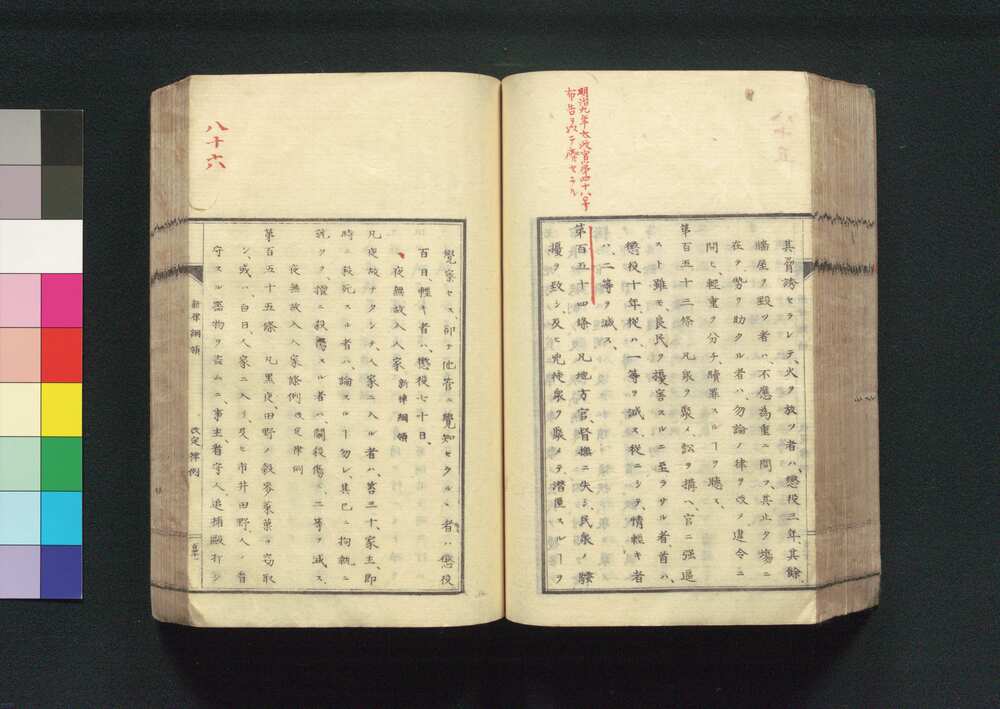 明治九年七政官第四十八号
布告ヲ以テ廃セラル
其脅誘セラレテ、火ヲ放ツ者ハ、懲役三年、其餘
牆屋ヲ毀ツ者ハ、不應為重ニ問ヒ、其止タ場ニ
在テ、勢ヲ助クル者ハ、勿論ノ律ヲ改メ、違令ニ
問ヒ、輕重ヲ分チ、贖罪スルヿヲ聴ス、
第百五十三條 凡衆ヲ聚メ、訟ヲ搆ヘ、官ニ強逼
スト雖モ、良民ヲ擾害スルニ至ラサル者、首ハ、
懲役十年、從ハ一等ヲ減ス、從ニシテ、情輕キ者
ハ、二等ヲ減ス、
第百五十四條 凡地方官、督撫ニ失シ、民衆ノ騒
擾ヲ致シ、及ヒ兇徒衆ヲ聚メテ、潜匿スルヿヲ
八十六
覺察セス、却テ他管ニ覺知セラルヽ者ハ、懲役
百日、輕キ者ハ、懲役七十日、
夜無故入人家 新律綱領
凡夜故ナクシテ、人家ニ入ル者ハ、笞三十、家主、即
時ニ殺死スル者ハ、論スルヿ勿レ、其已ニ拘執ニ
就クヲ、擅ニ殺傷スル者ハ、鬪殺傷ニ、二等ヲ減ス、
夜無故入人家條例 改定律例
第百五十五條 凡黒夜、田野ノ穀麥菜菓ヲ窃取
シ、或ハ、白日、人家ニ入リ、及ヒ市井田野、人ノ看
守スル器物ヲ盗ムニ、事主、看守人、追捕毆打シ
新律綱領
改定律例